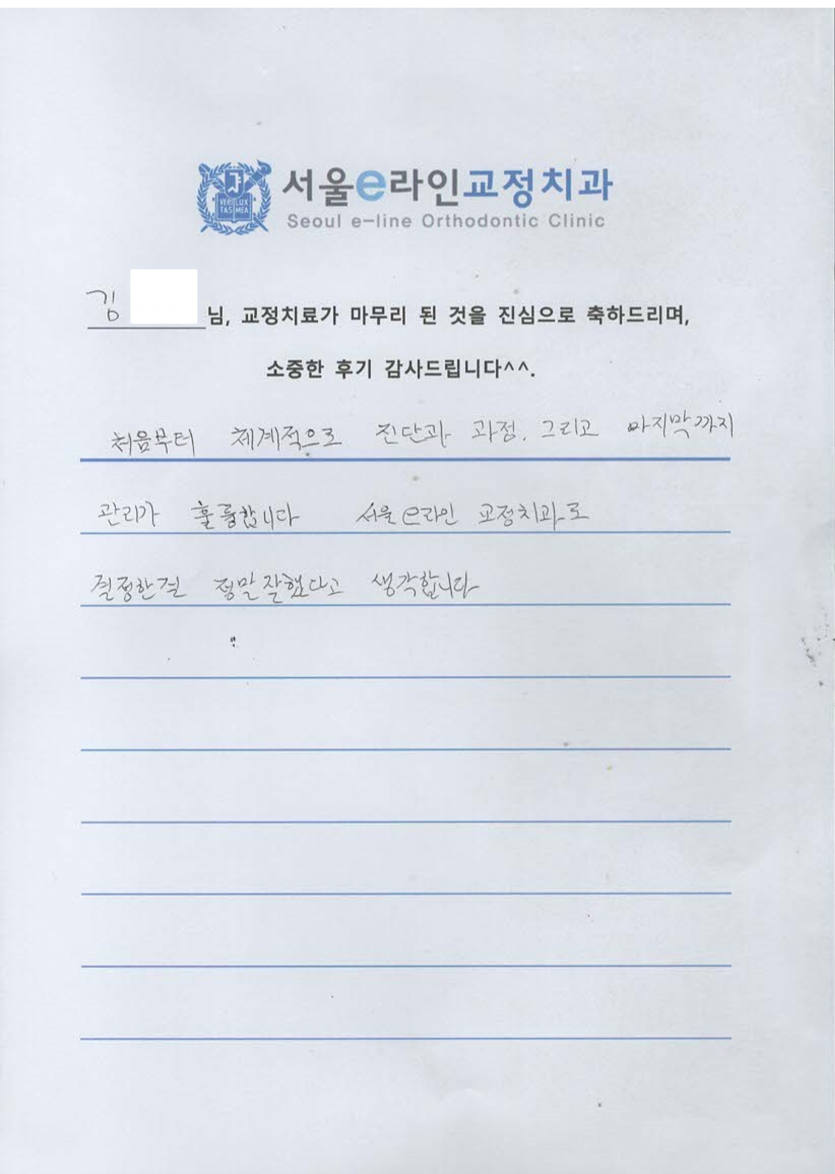 VERI LUX
TAS MEA
서울e라인교정치과
Seoul e-line Orthodontic Clinic
김 님, 교정치료가 마무리 된 것을 진심으로 축하드리며,
소중한 후기 감사드립니다^^.
처음부터 체계적으로 진단과 과정. 그리고 마지막까지
관리가 훌륭합니다 서울 e라인 교정치과로
결정한걸 정말 잘했다고 생각합니다